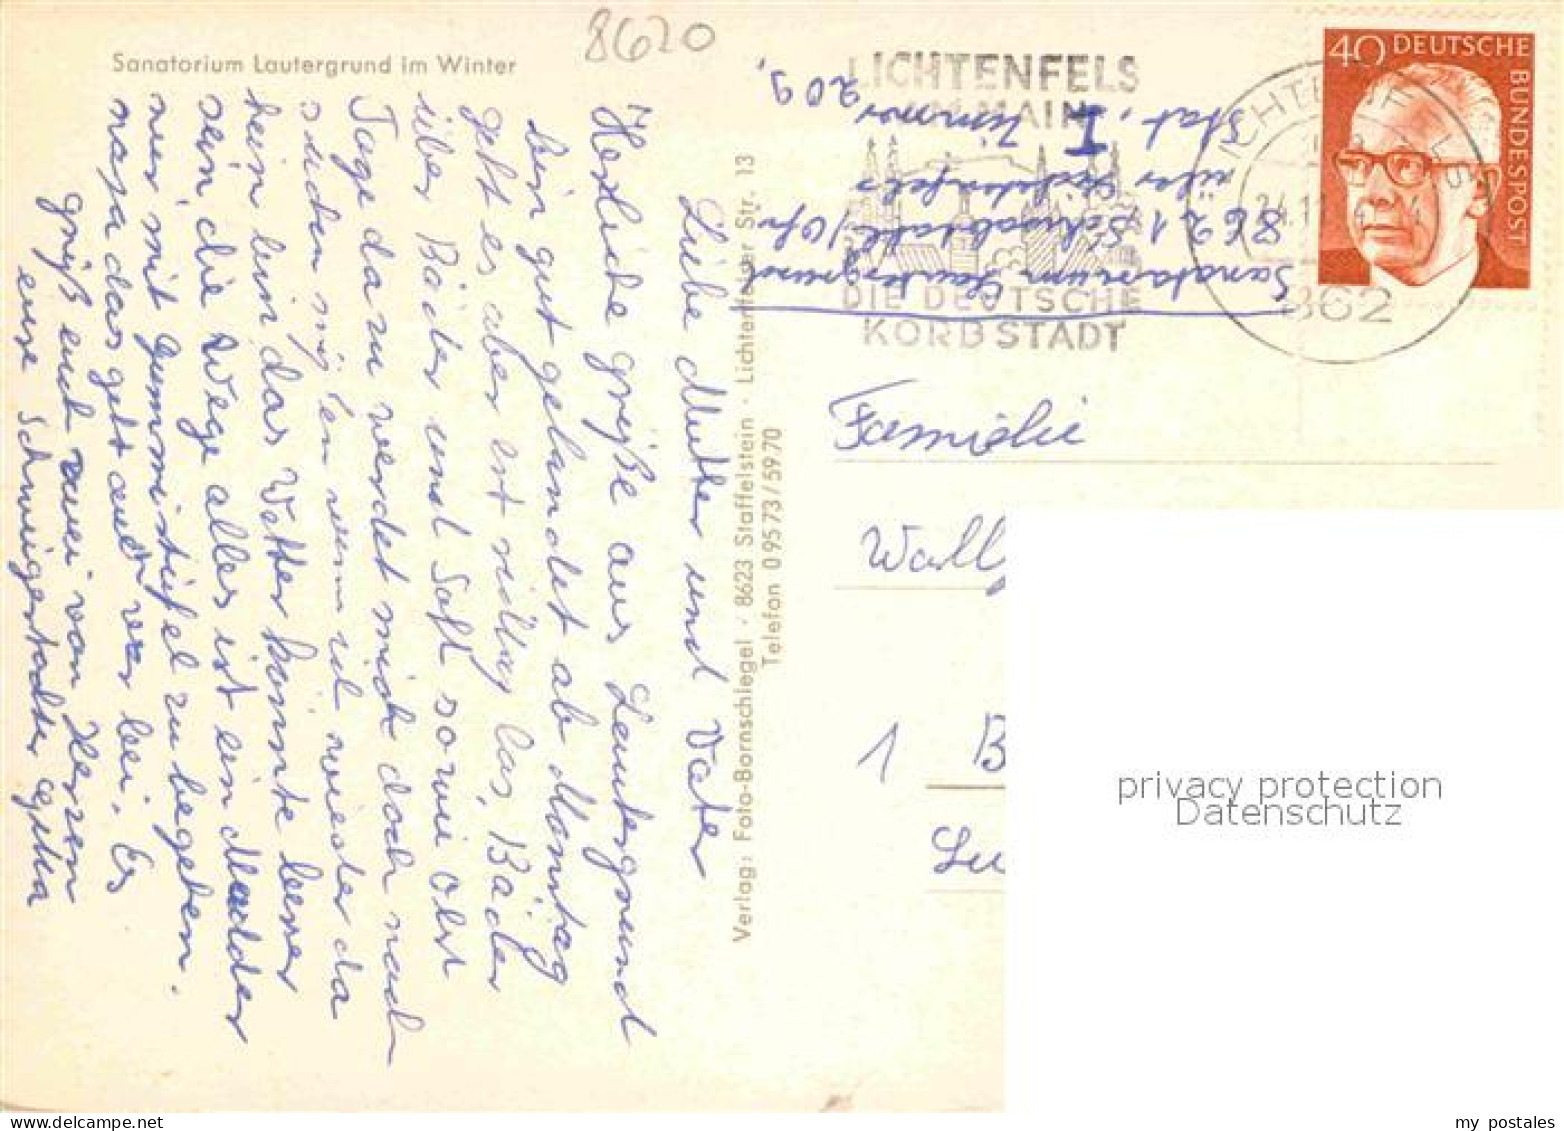 Sanatorium Lautergrund im Winter
8620
Liebe Mutter und Vater
Herzliche grüße aus Lautergrund
bin gut gelandet ab Montag
geht es aber erst richtig los, Bäder
über Bäder und Saft sowie Obst
Tage dazu werdet mich doch noch
suchen müßen wenn ich wieder da
bein nun das Wetter könnte besser
sein die Wege alles ist ein Madder
nur mit Gummistiefel zu begehen.
naja das geht auch vor bei. Es
grüßt euch zwei von Herzen
eure Schwigertochter
Verlag: Foto-Bornschlegel · 8623 Staffelstein · Lichtenfelser Str. 13
Telefon 09573/5970
Sanatorium Lautergrund
8621 Schwabthal/Ofr
über Lichtenfels
Stat. I Zimmer 209,
LICHTENFELS
AM MAIN
DIE DEUTSCHE
KORBSTADT
LICHTENFELS
862
40 DEUTSCHE
BUNDESPOST
Familie
Wall
1 B
Lu
privacy protection
Datenschutz
my postales